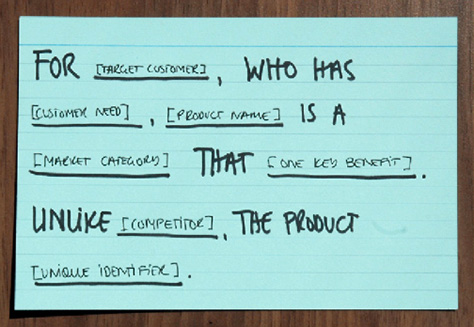 FOR [TARGET CUSTOMER], WHO HAS
[CUSTOMER NEED], [PRODUCT NAME] IS A
[MARKET CATEGORY] THAT [ONE KEY BENEFIT].
UNLIKE [COMPETITOR], THE PRODUCT
[UNIQUE IDENTIFIER].